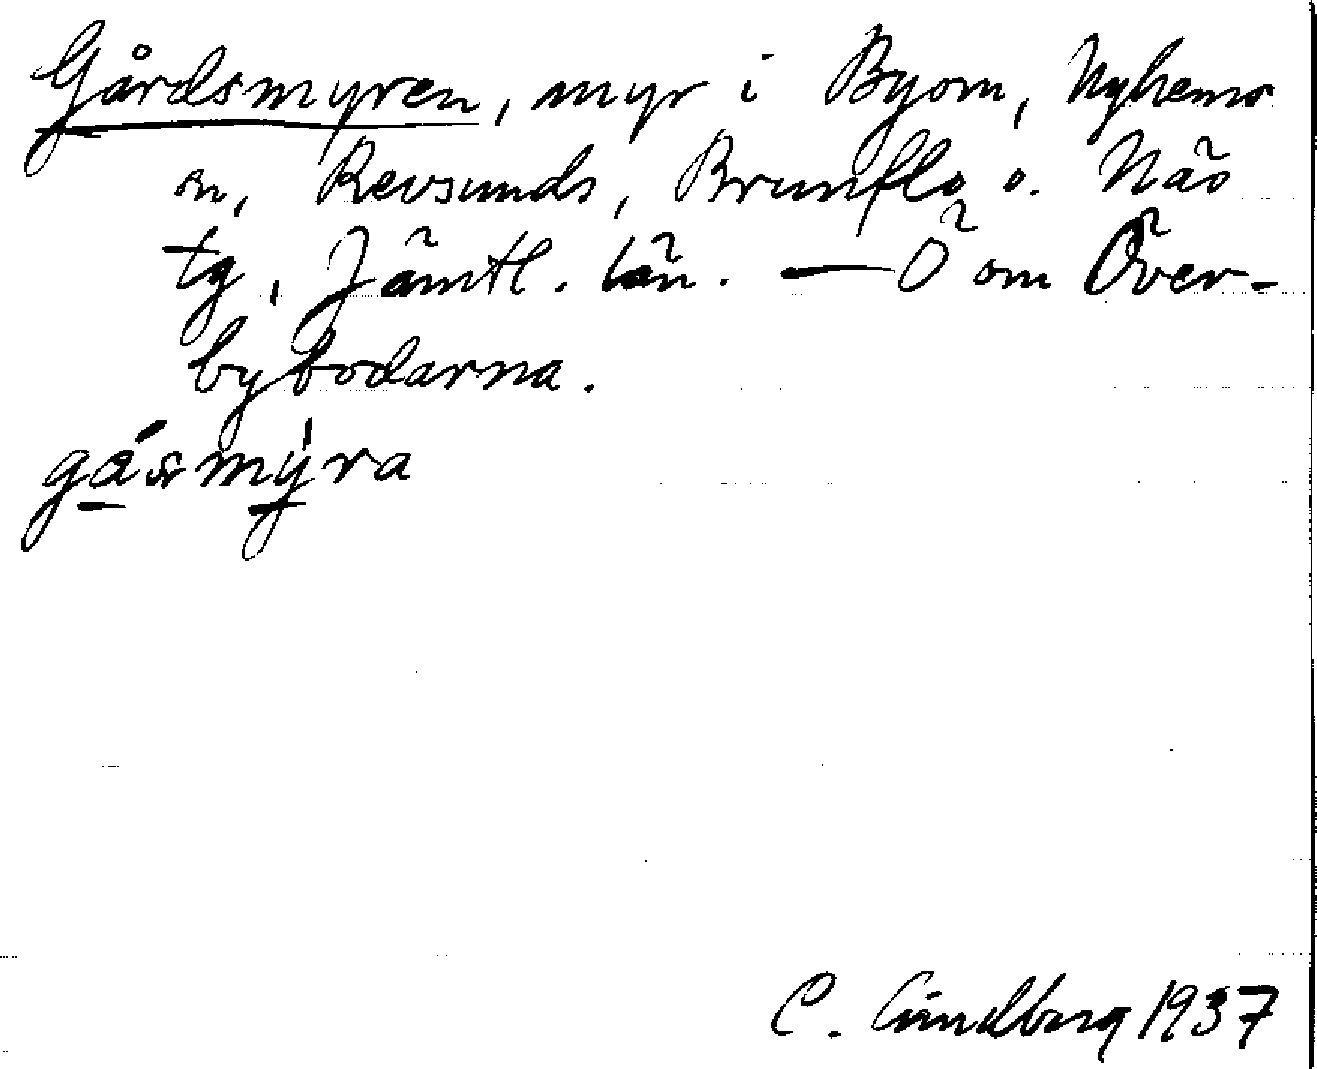 Gårdsmyren, myr i Byom, Nyhems
sn, Revsunds, Brunflo o. Näs
tg, Jämtl. län. — Ö om Över-
bybodarna.
gásmýra
C. Lindberg 1937